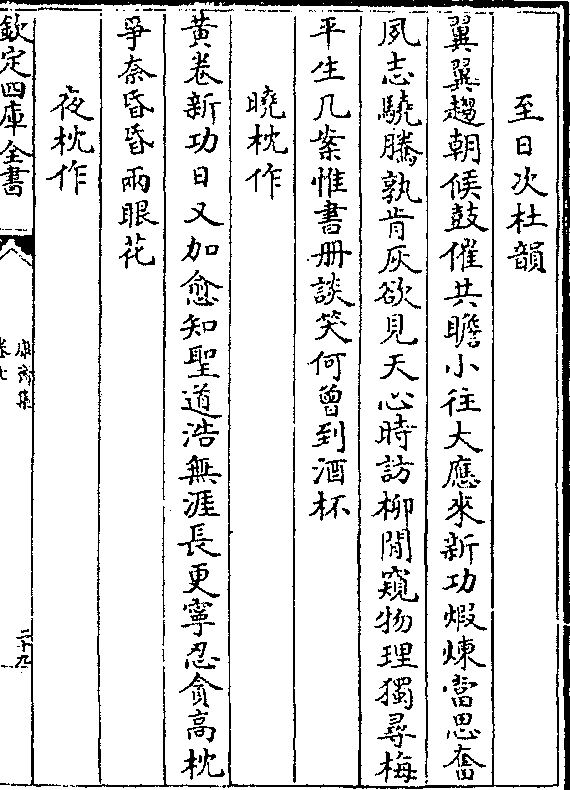 至日次杜韻
翼翼趨朝候鼓催共瞻小往大應來新功煆煉當思奮
夙志驍騰孰肯灰欲見天心時訪柳閒窺物理獨尋梅
平生几案惟書册談笑何曾到酒杯
曉枕作
黃卷新功日又加愈知聖道浩無涯長更寧忍貪高枕
爭奈昏昏兩眼花
夜枕作
欽定四庫全書
康齋集
卷七
二十九